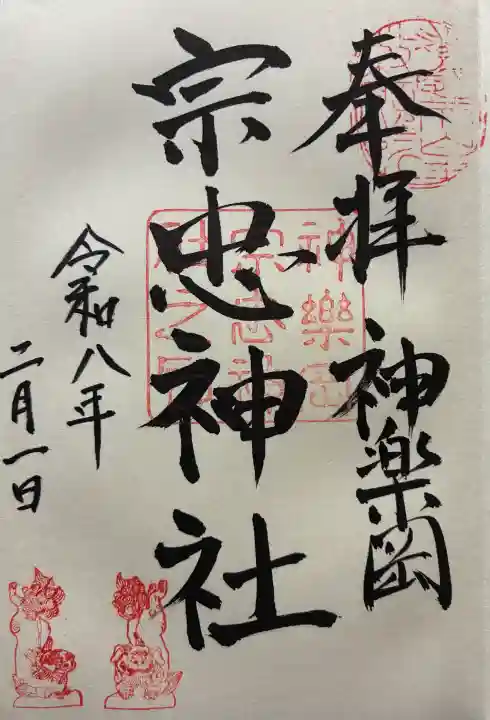 奉拝 神楽岡
宗忠神社
令和八年
二月一日
神樂岡
宗忠神
社之印